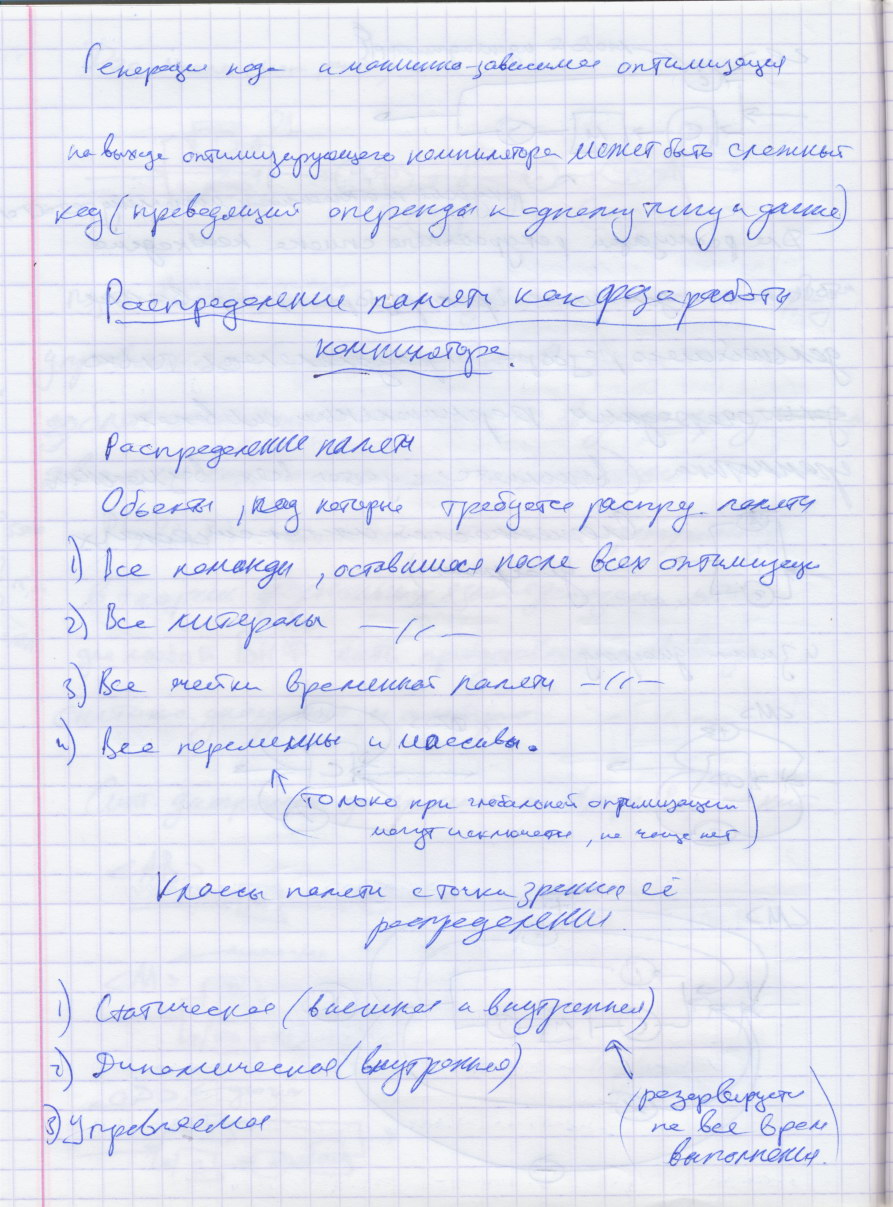 Генерация кода и машинно-зависимая оптимизация
на выходе оптимизирующего компилятора может быть сложный
код (приводящий операнды к одному типу и далее)
Распределение памяти как фаза работы
компилятора.
Распределение памяти
Объекты, под которые требуется распред. памяти
1) Все команды, оставшиеся после всех оптимизаци
2) Все литералы —//—
3) Все ячейки временной памяти —//—
4) Все переменны и массивы.
(только при глобальной оптимизации
могут исключатся, но чаще нет)
Классы памяти с точки зрения её
распределения.
1) Статическая (внешняя и внутренняя)
2) Динамическая (внутренняя)
3) Управляемая
(резервируется
на все время
выполнения.)